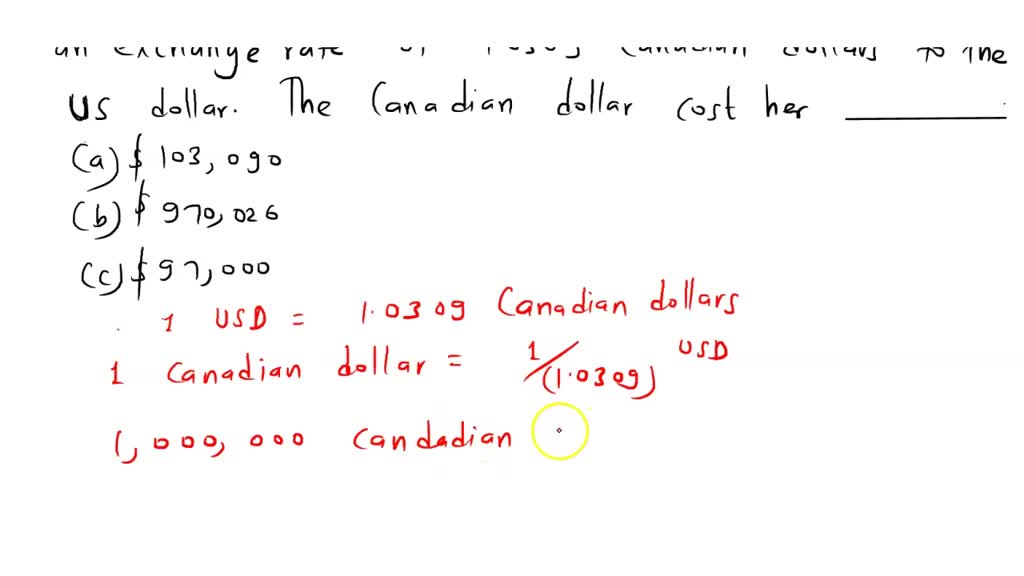 an exchange rate of 1.0309 Canadian dollars to the
US dollar. The Canadian dollar cost her ______
(a) $ 103,090
(b) $ 970,026
(c) $ 97,000
1 USD = 1.0309 Canadian dollars
1 Canadian dollar = 1/(1.0309) USD
1,000,000 Candadian